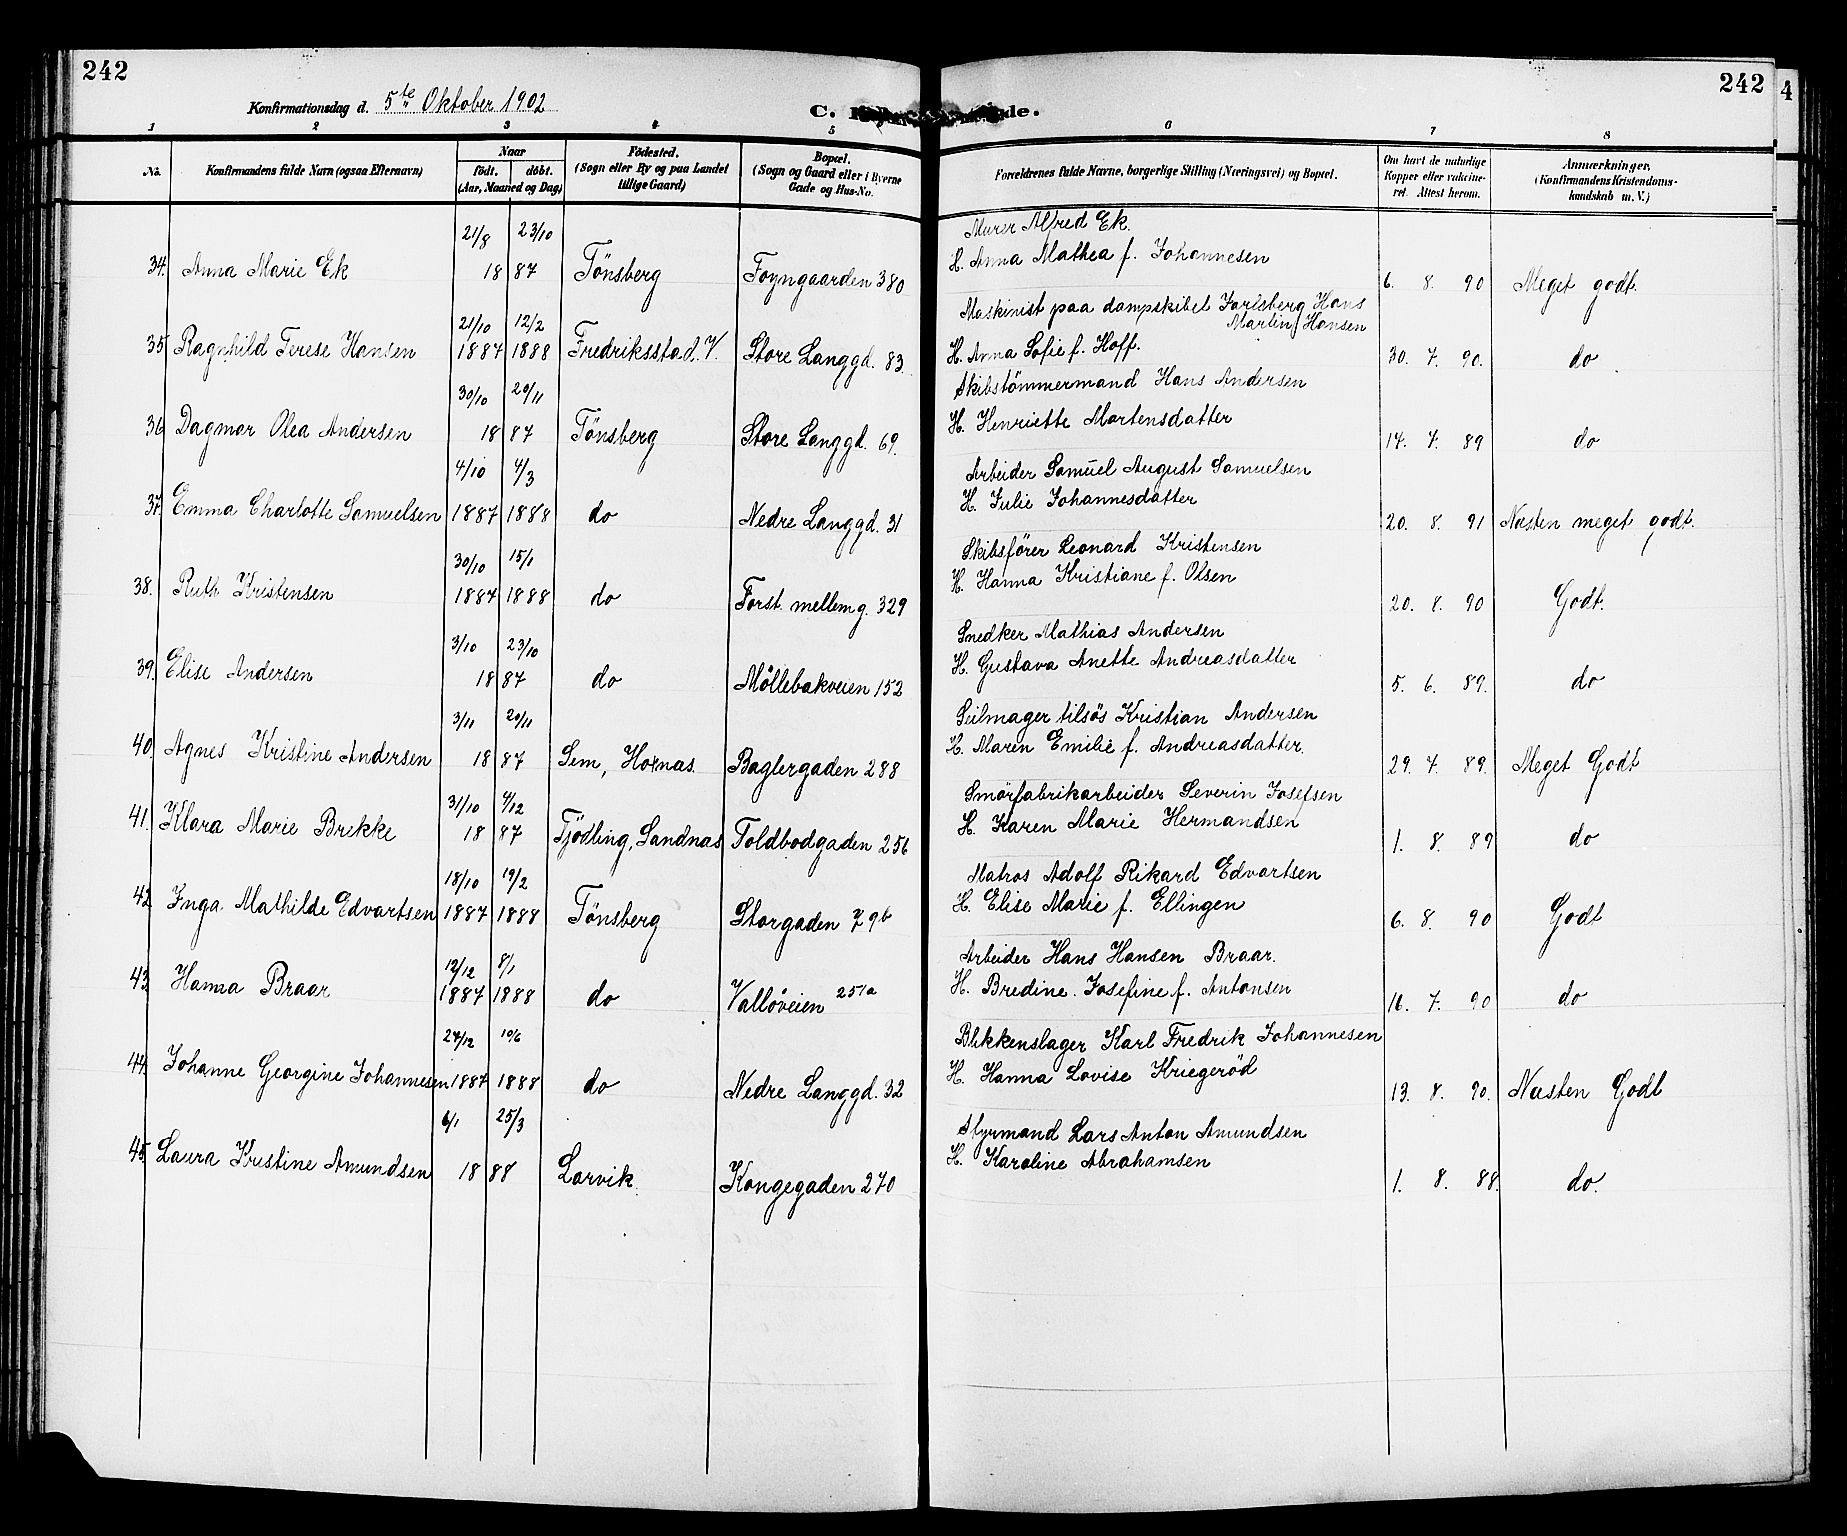 242
242
4
Konfirmationsdag d. 5te Oktober 1902
C.
de.
1 2 3 4 5 6 7 8
No.
Konfirmandens fulde Navn (ogsaa Efternavn)
Naar
födt. döbt.
(Aar, Maaned og Dag)
Födested.
(Sogn eller By og paa Landet
tillige Gaard)
Bopæl.
(Sogn og Gaard eller i Byerne
Gade og Hus-No.
Forældrenes fulde Navne, borgerlige Stilling (Næringsvei) og Bopæl.
Om havt de naturlige
Kopper eller vakcine-
ret. Attest herom.
Anmærkninger,
(Konfirmandens Kristendoms-
kundskab m. V.)
21/8 23/10 Murer Alfred Ek.
34. Anna Marie Ek 18 87 Tönsberg Foyngaarden 380 H. Anna Mathea f. Johannesen 6. 8. 90 Meget godt.
21/10 12/2 Maskinist paa dampskibet Jarlsberg Hans
Martin Hansen
35 Ragnhild Terese Hansen 1887 1888 Fredriksstad. V. Store Langgd. 83 H. Anna Sofie f. Hoff. 30. 7. 90. do
30/10 20/11 Skibstömmermand Hans Andersen
36 Dagmar Olea Andersen 18 87 Tönsberg Store Langgd. 69. H. Henriette Martensdatter 14. 7. 89 do
4/10 4/3 Arbeider Samuel August Samuelsen
37. Emma Charlotte Samuelsen 1887 1888 do Nedre Langgd. 31 H. Julie Johannesdatter 20. 8. 91 Næsten meget godt.
30/10 15/1 Skibsförer Leonard Kristensen
38. Ruth Kristensen 1887 1888 do Forst. mellemg. 329 H. Hanna Kristiane f. Olsen 20. 8. 90 Godt.
3/10 23/10 Snedker Mathias Andersen
39. Elise Andersen 18 87 do Möllebakveien 152 H. Gustava Anette Andreasdatter 5. 6. 89. do
3/11 20/11 Seilmager tilsös Kristian Andersen
40. Agnes Kristine Andersen 18 87 Sem, Hornas. Baglergaden 288 H. Maren Emilie f. Andreasdatter. 29. 7. 89. Meget Godt
31/10 4/12 Smörfabrikarbeider Severin Josefsen
41. Klara Marie Brekke 18 87 Tjödling, Sandnas Toldbodgaden 256 H. Karen Marie Hermandsen 1. 8. 89 do
18/10 19/2 Matros Adolf Rikard Edvartsen
42. Inga Mathilde Edvartsen 1887 1888 Tönsberg Storgaden 79b H. Elise Marie f. Ellingen 6. 8. 90 Godt
12/12 8/1 Arbeider Hans Hansen Braar.
43. Hanna Braar 1887 1888 do Vallöveien 251a H. Bredine Josefine f. Antonsen 16. 7. 90 do
27/12 10/6 Blikkenslager Karl Fredrik Johannesen
44. Johanne Georgine Johannesen 1887 1888 do Nedre Langgd. 32 H. Hanna Lovise Kriegeröd 13. 8. 90. Næsten Godt
6/1 25/3 Styrmand Lars Anton Amundsen
45. Laura Kristine Amundsen 18 88 Larvik. Kongegaden 270 H. Karoline Abrahamsen 1. 8. 88. do.